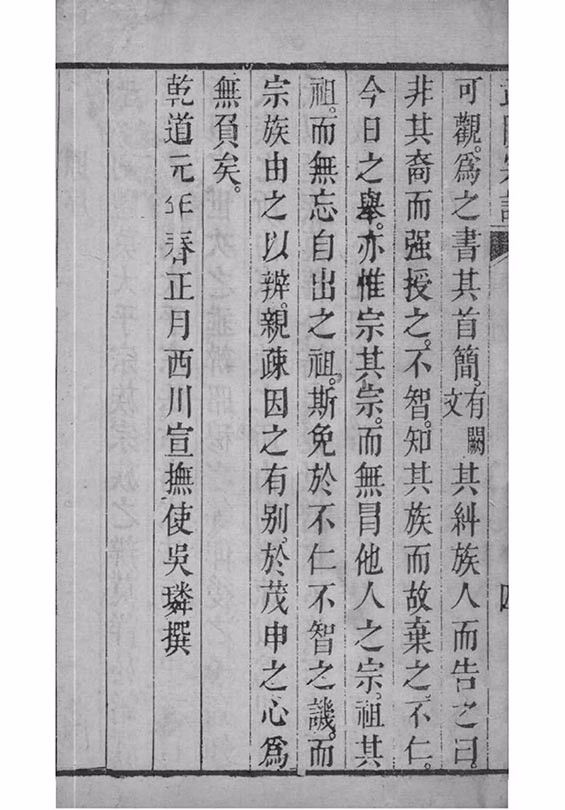 可觀。爲之書其首簡。有闕文其糾族人而告之曰。
非其裔而强授之。不智。知其族而故棄之。不仁。
今日之舉。亦惟宗其宗。而無冒他人之宗。祖其
祖。而無忘自出之祖。斯免於不仁不智之譏。而
宗族由之以辨。親疎因之有别。於茂申之心爲
無負矣。
乾道元年春正月西川宣撫使吳璘撰